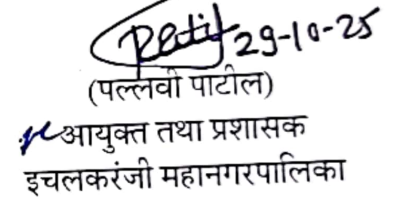 29-10-25
(पल्लवी पाटील)
आयुक्त तथा प्रशासक
इचलकरंजी महानगरपालिका